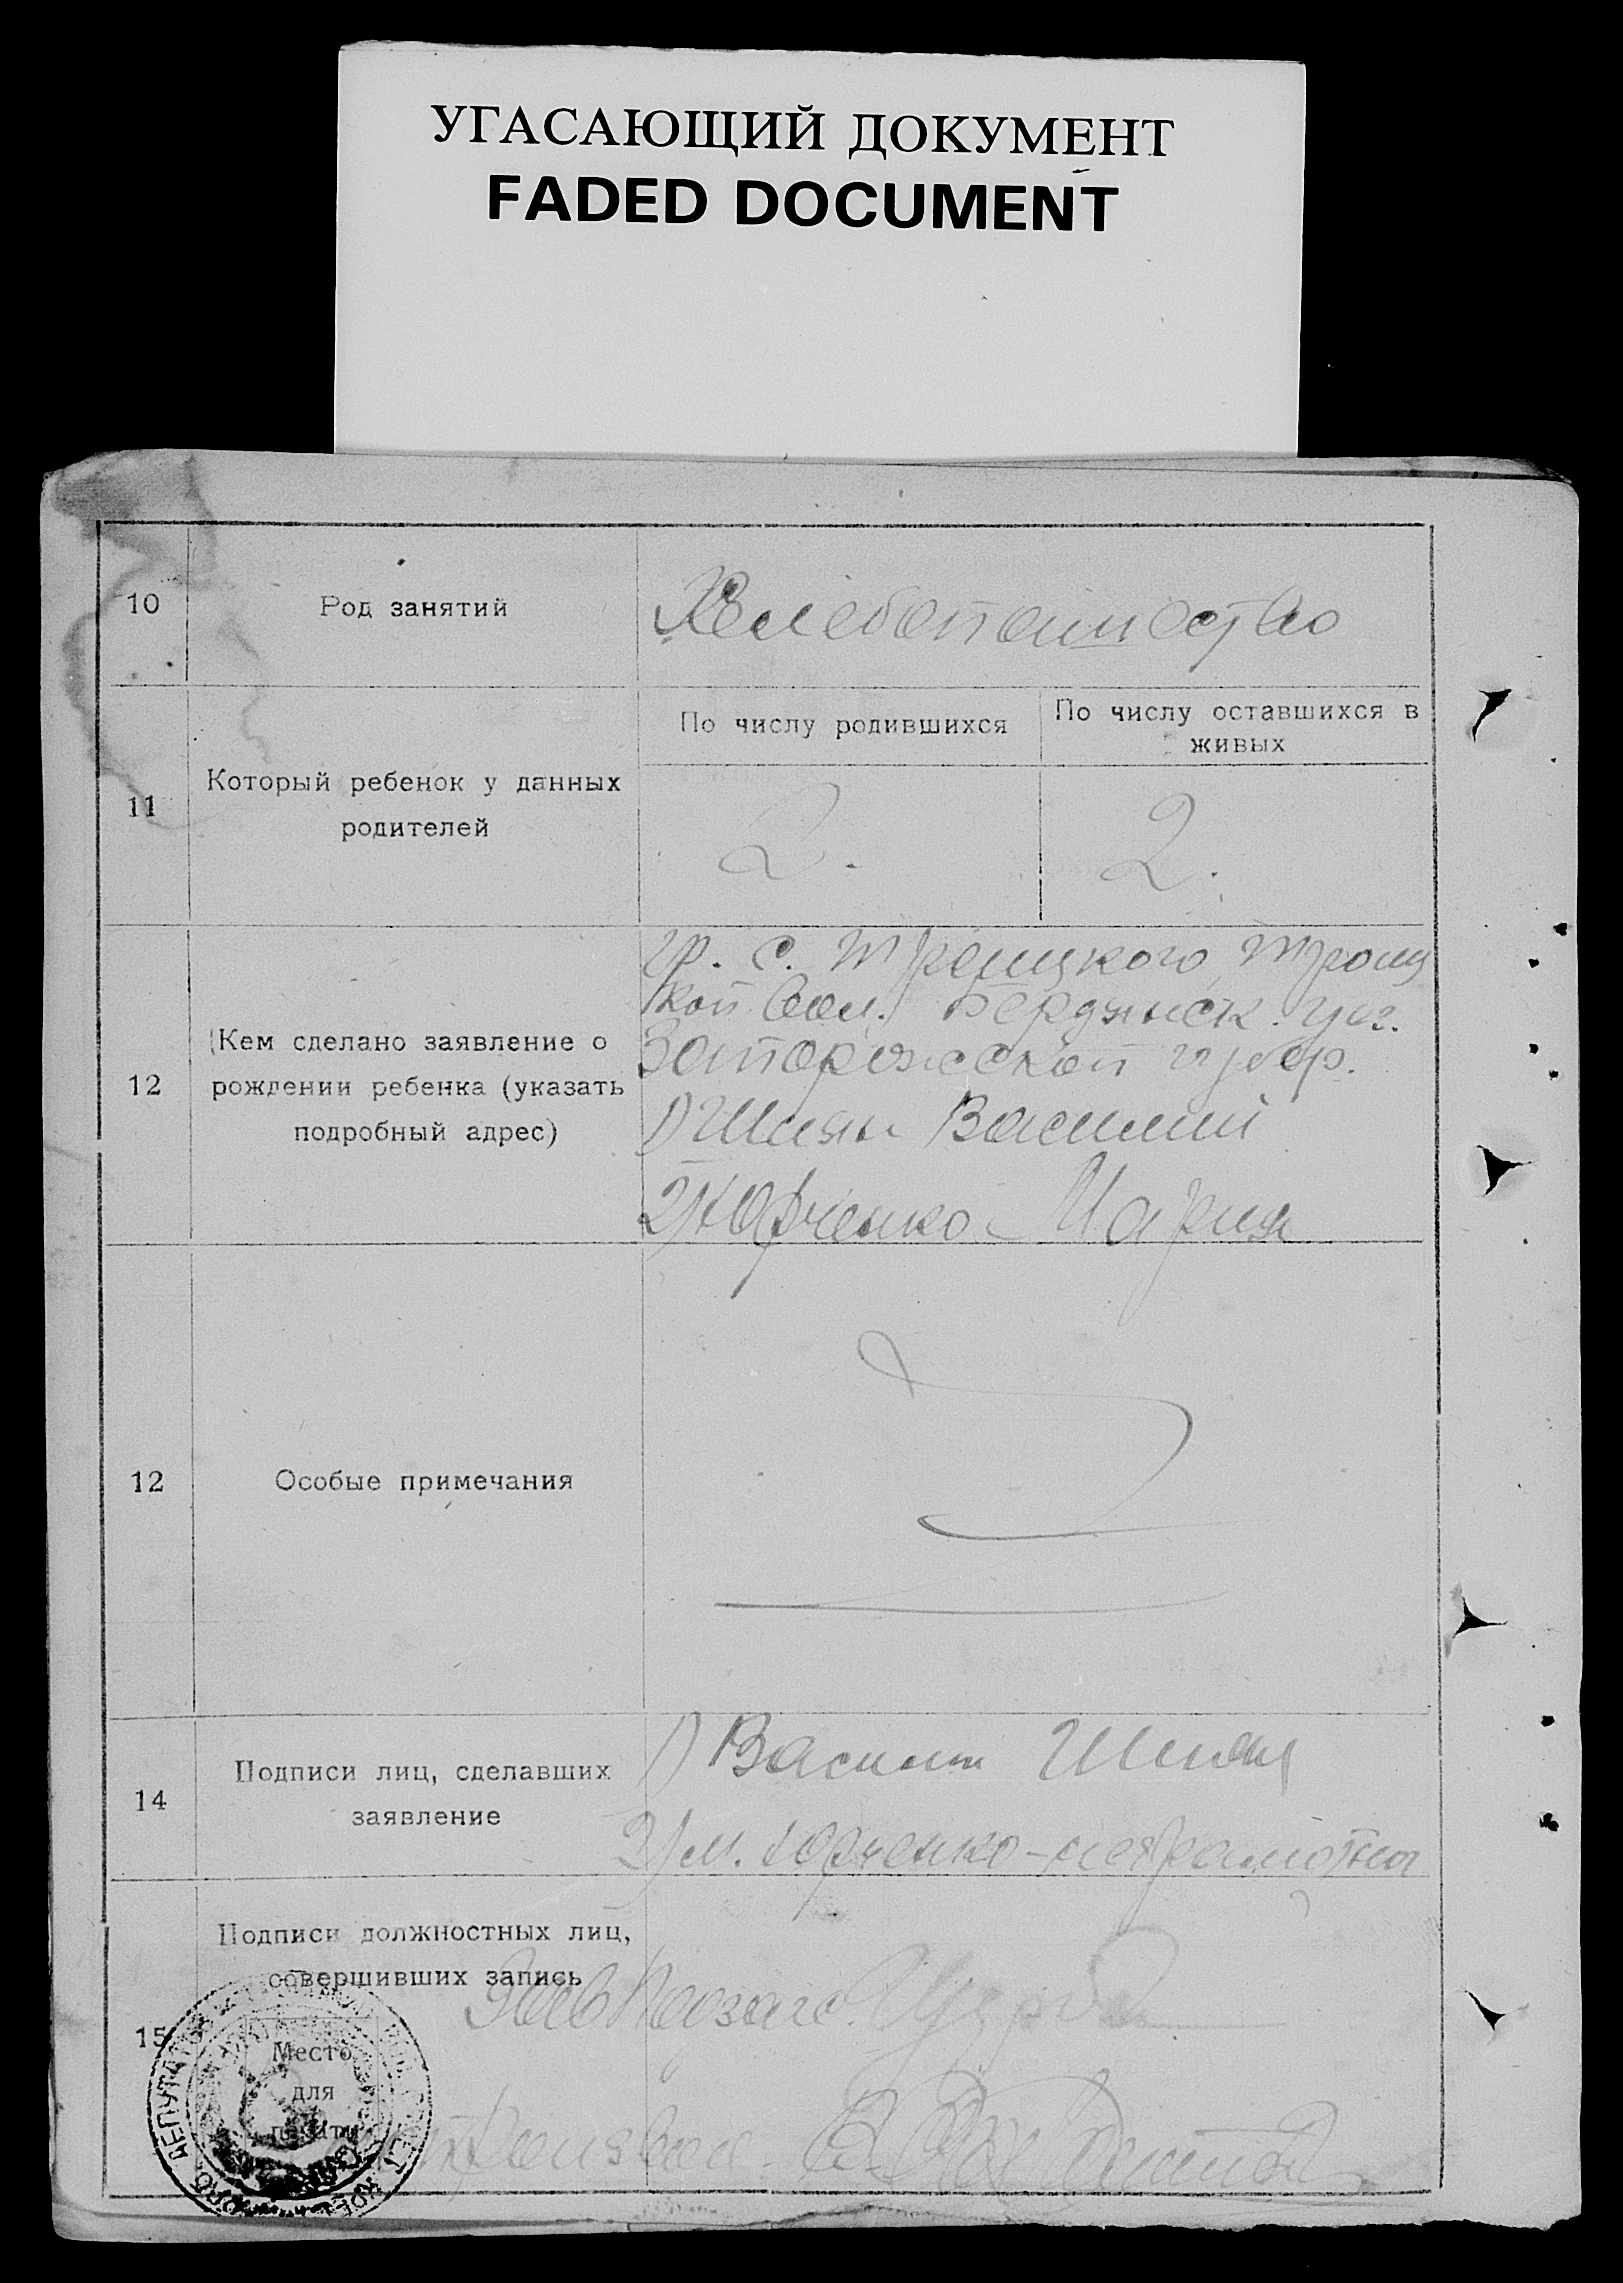 УГАСАЮЩИЙ ДОКУМЕНТ
FADED DOCUMENT
10
Род занятий
Хлебопашество
11
Который ребенок у данных
родителей
По числу родившихся
По числу оставшихся в
живых
2.
2.
12
(Кем сделано заявление о
рождении ребенка (указать
подробный адрес)
гр. с. Троицкого, Троиц
кой Вол. Бердянск. уез.
Запорожской губер.
1) Шиян Василий
2) Юрченко Мария
12
Особые примечания
14
Подписи лиц, сделавших
заявление
1) Василий Шиян
2) М. Юрченко - неграмотна
15
Подписи должностных лиц,
совершивших запись
Место
для
печати